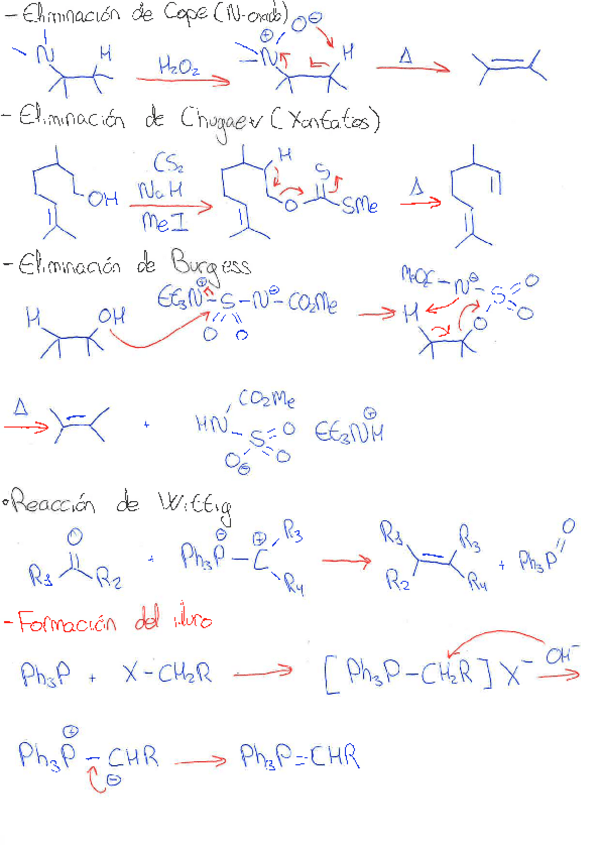 - Eliminación de Cope (N-oxido)
N H H₂O₂ N⊕ O⊖ H Δ
- Eliminación de Chugaev (Xantatos)
OH CS₂ NaH MeI H O S SMe Δ
- Eliminación de Burgess
H OH Et₃N⊕-S-N⊖-CO₂Me O O MeO₂C-N⊖ S O O O H
Δ + HN CO₂Me S O O O⊖ Et₃NH⊕
• Reacción de Wittig
O R₁ R₂ + Ph₃P⊖-C⊕ R₃ R₄ R₁ R₂ R₃ R₄ + Ph₃P=O
- Formación del iluro
Ph₃P + X-CH₂R [Ph₃P-CH₂R] X⁻ OH⁻
Ph₃P⊕-CHR⊖ Ph₃P=CHR